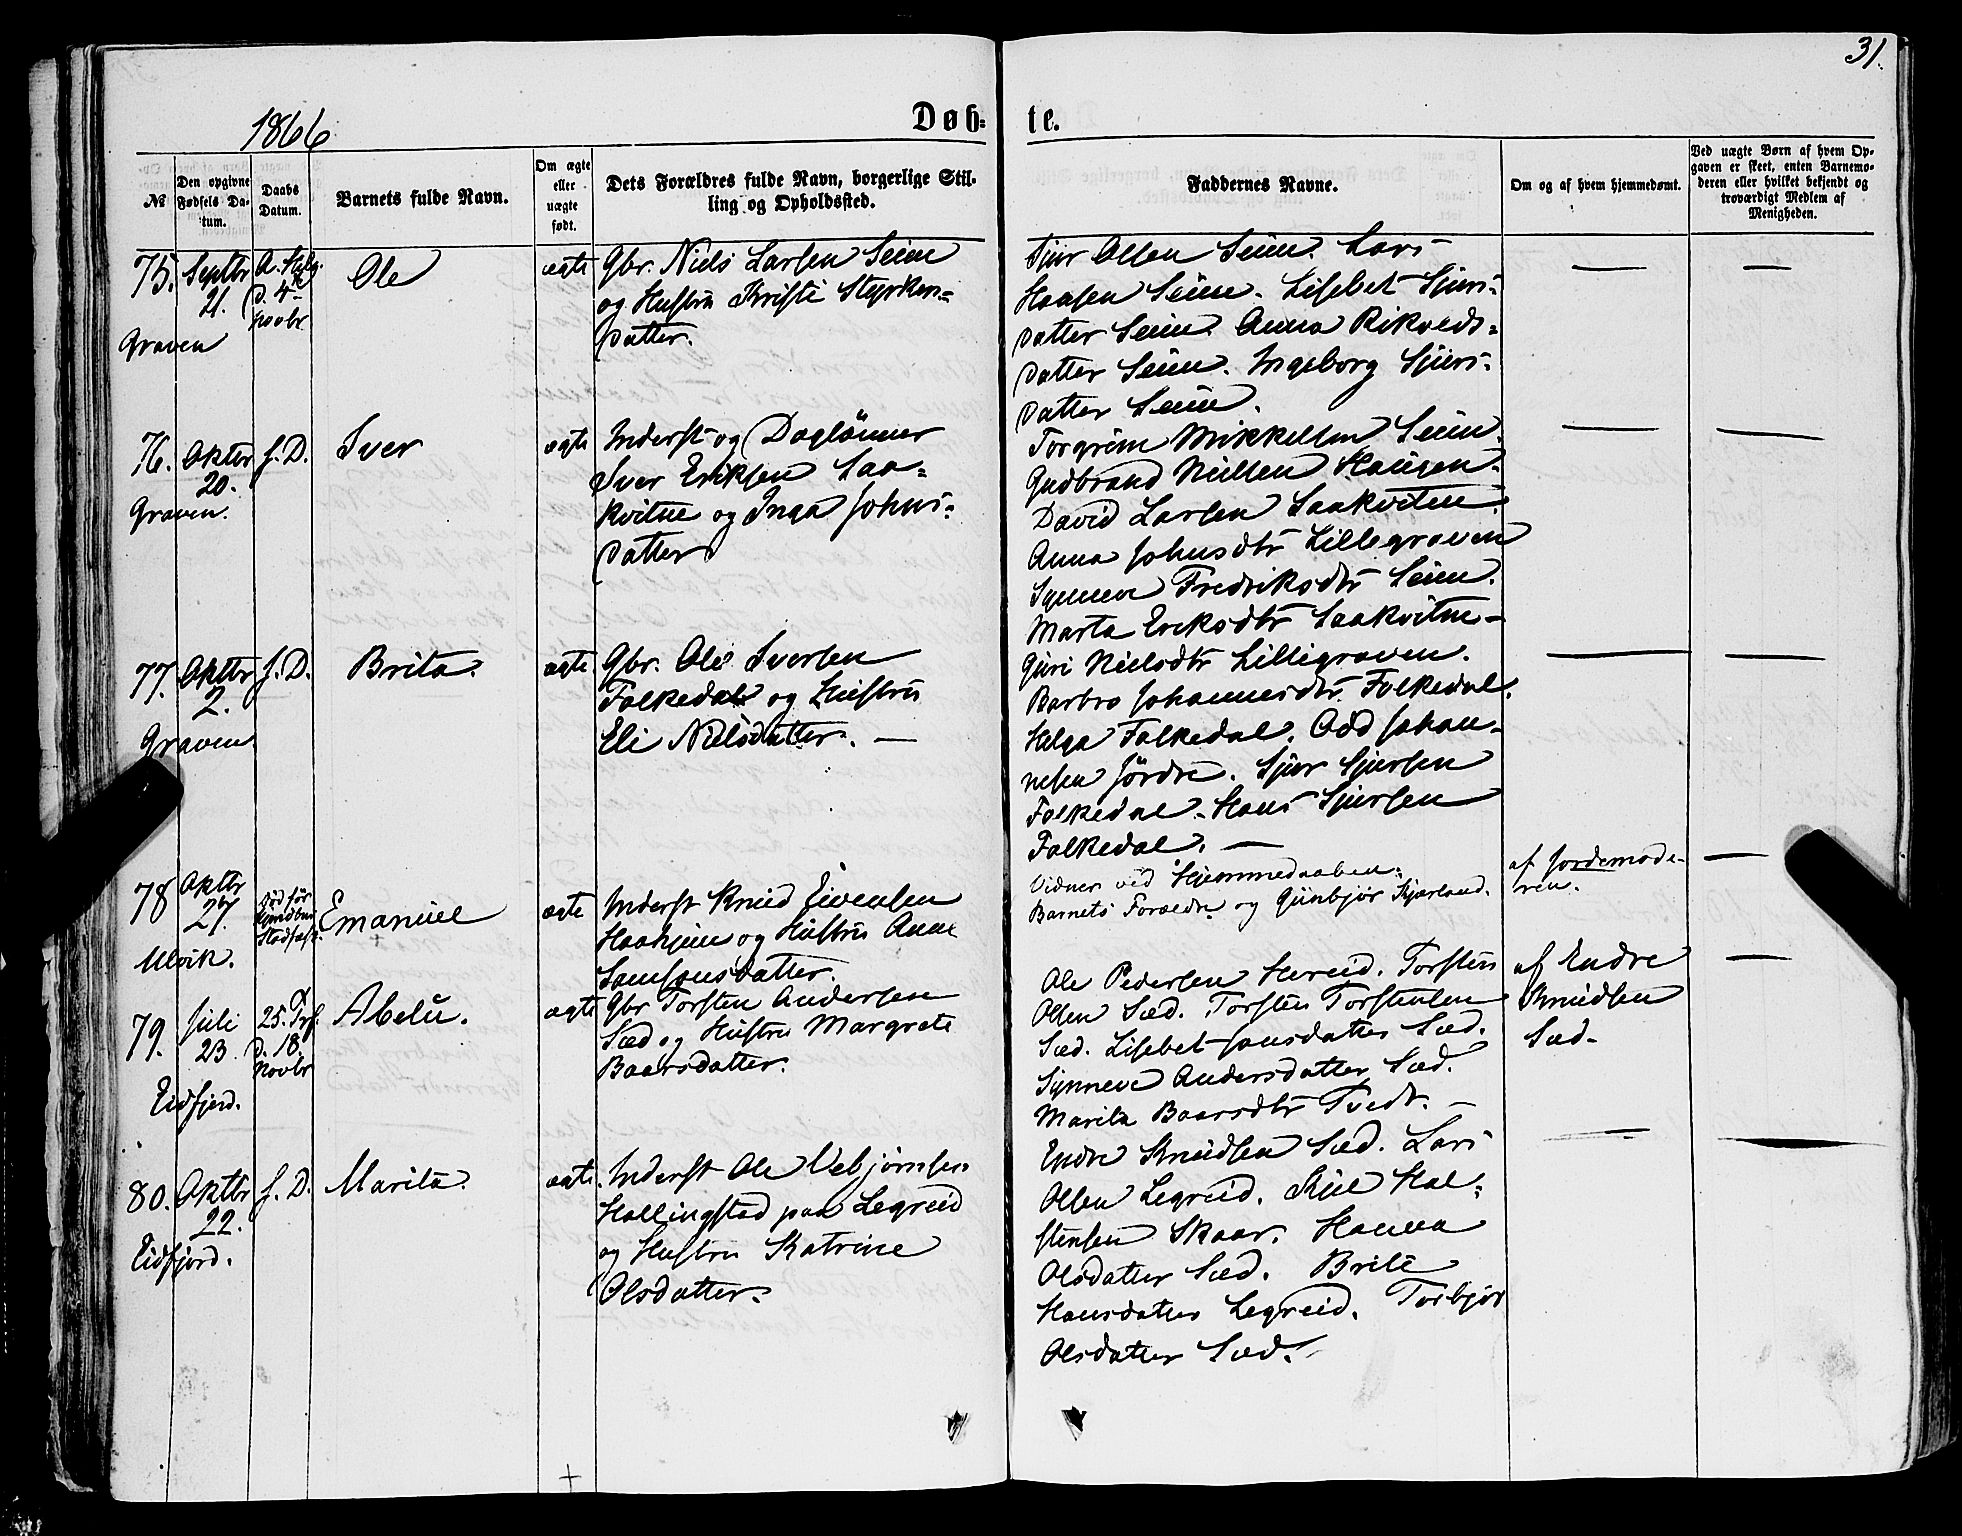 31.
1866
Døb-
te.
№
Den opgivne Fødsels Datum.
Daabs Datum.
Barnets fulde Navn.
Om ægte eller uægte født.
Dets Forældres fulde Navn, borgerlige Stilling og Opholdssted.
Faddernes Navne.
Om og af hvem hjemmedømt.
Ved uægte Børn af hvem Opgaven er skeet, enten Barnemoderen eller hvilket bekjendt og troværdigt Medlem af Menigheden.
75. Septbr 21. A. Helg. d. 4de Novbr Ole ægte Gbr. Niels Larsen Seim
og Hustru Kristi Styrkers-
datter.
Graven
Sjur Olsen Seim. Lars
Hansen Seim. Lisebet Sjurs-
datter Seim. Anna Rikveds-
datter Seim. Ingeborg Sjurs-
datter Seim.
— —
76. Oktbr 20. s. D. Iver ægte Inderst og Daglönner
Iver Eriksen Saa-
kvitne og Inga Johns-
datter
Graven.
Torgrim Mikkelsen Seim.
Gudbrand Nielsen Haugen.
David Larsen Saakviten.
Anna Johnsdtr Lillegraven
Synneve Fredriksdtr Seim.
Marta Eriksdtr Saakvitne-
— —
77. Oktbr 2. s. D. Brita. ægte Gbr. Ole Iversen
Folkedal og Hustru
Eli Nielsdatter. —
Graven.
Guri Nielsdtr Lillegraven.
Barbro Johannesdtr Folkedal.
Helga Folkedal. Odd Johan-
nesen Jördre. Sjur Sjursen
Folkedal. Hans Sjursen
Folkedal. —
— —
78 Oktbr 27. Död før Stadfæst. Emanuel ægte Inderst Knud Eivensen
Haaheim og Hustru Anne
Samsonsdatter.
Ulvik.
Vidner ved Hjemmedaaben:
Barnets Forældre og Gunbjør Kjærland.
af Jordemode-
ren.
—
79. Juli 23 25. Trf. d. 18 Novbr Abelu. ægte Gbr Torsten Andersen
Sæd og Hustru Margrete
Baarsdatter.
Eidfjord.
Ole Pedersen Hereid. Torsten
Olsen Sæd. Torsten Torstensen
Sæd. Lisebet Jonsdatter Sæd.
Synneve Andersdatter Sæd.
Marita Baarsdtr Tvedt. —
af Endre
Knudsen
Sæd-
—
80. Oktbr 22. s. D. Marita. ægte. Inderst Ole Vebjørnsen
Hallingstad paa Legreid
og Hustru Katrine
Olsdatter.
Eidfjord.
Endre Knudsen Sæd. Lars
Olsen Legreid. Kjel Hal-
stensen Skaar. Hanna
Olsdatter Sæd. Brite
Hansdatter Legreid. Torbjør
Olsdatter Sæd.
— —